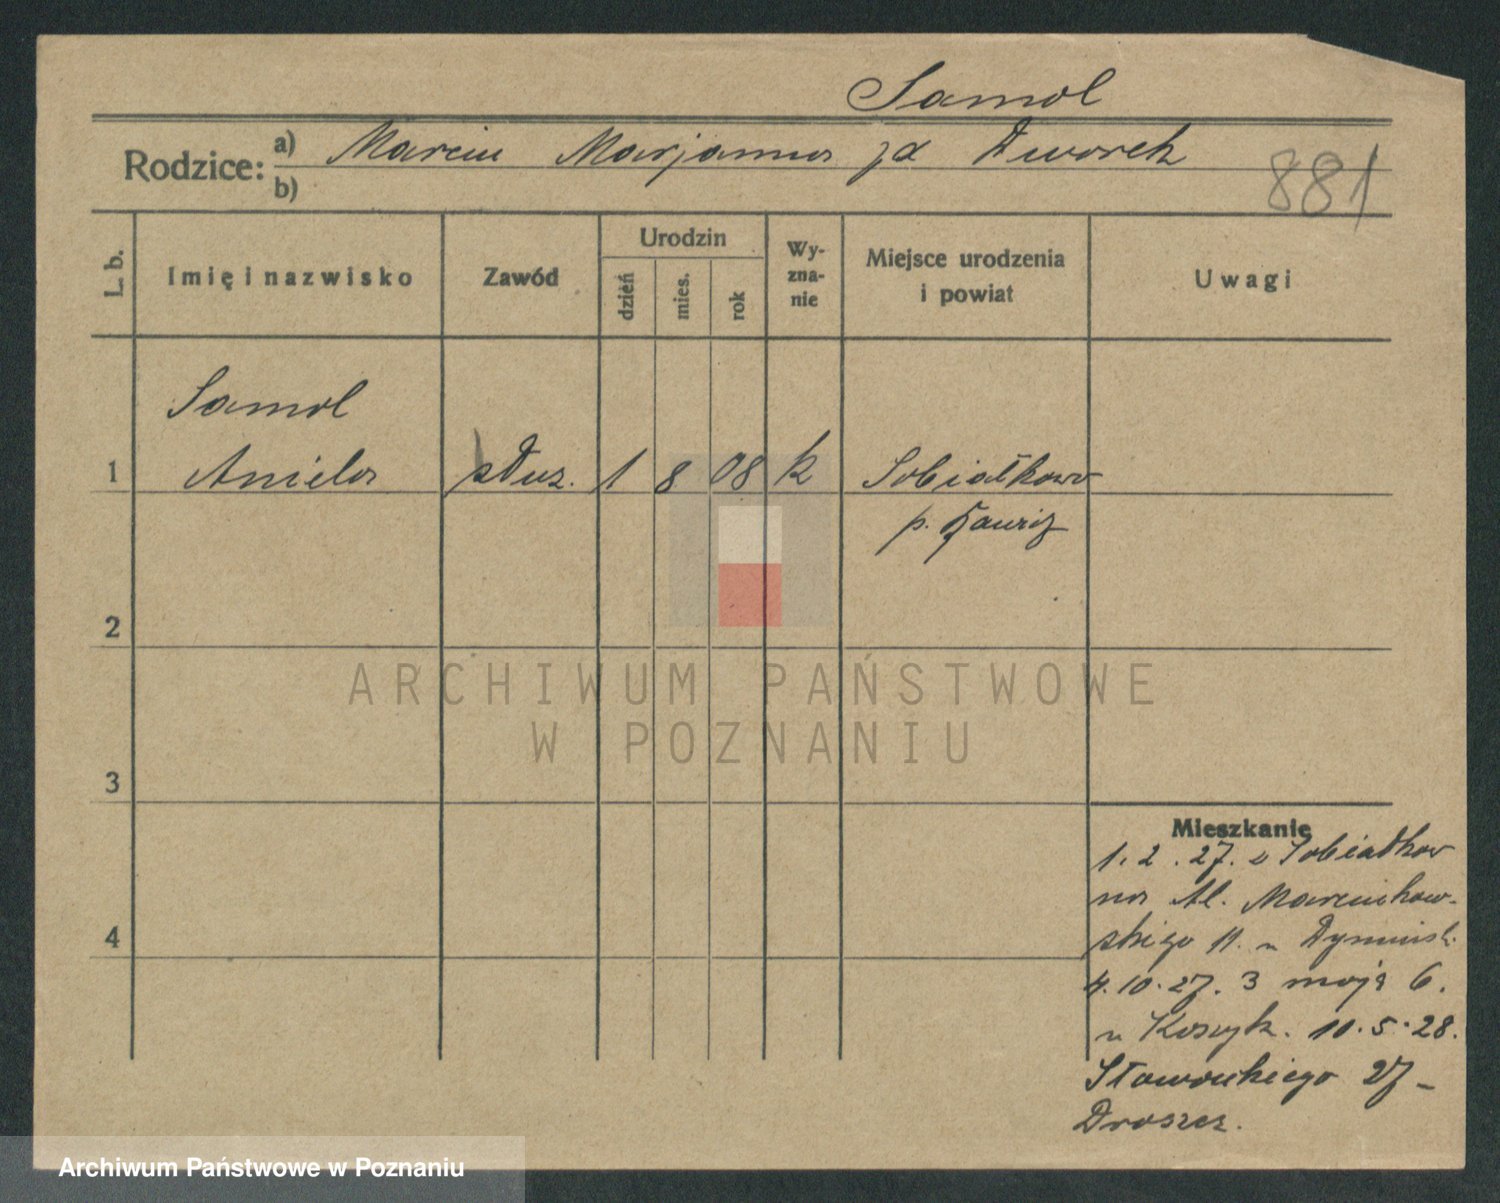 Samol
Rodzice: a) Marcin Marjanna zd Dworek
b)
881
L. b.
Imię i nazwisko
Zawód
Urodzin
dzień
mies.
rok
Wy-
zna-
nie
Miejsce urodzenia
i powiat
Uwagi
Samol
1 Aniela służ. 1 8 08 k Sobiałkowo
p. Rawicz
2
3
4
ARCHIWUM PAŃSTWOWE
W POZNANIU
Mieszkanie
1.2.27. z Sobiałkow
na Al. Marcinkow-
skiego 11. u
4.10.27. 3 maja 6.
u 10.5.28.
Słowackiego 27
Archiwum Państwowe w Poznaniu